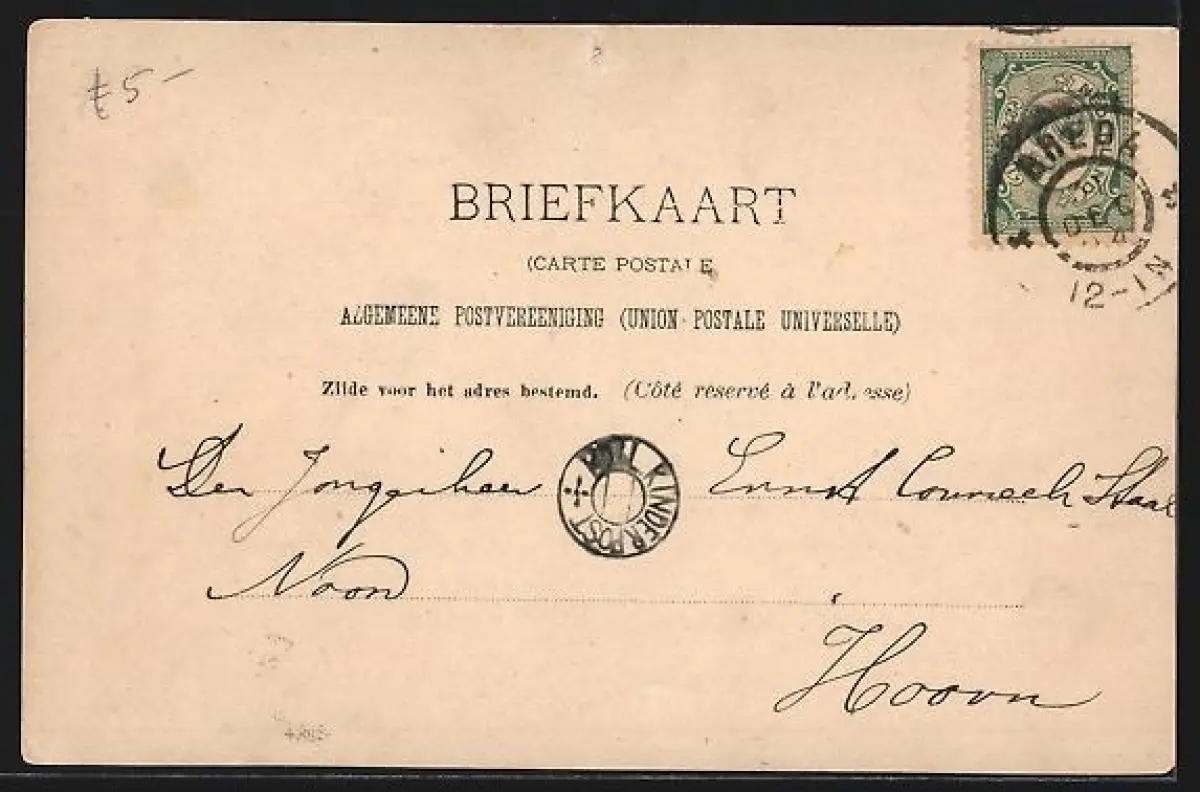 5 -
BREDA
DEC
12-1N
BRIEFKAART
(CARTE POSTALE
ALGEMEENE POSTVEREENIGING (UNION POSTALE UNIVERSELLE)
Zijde voor het adres bestemd. (Côté reservé à l'ad. esse)
Den Jongeheer Ernst Staal
KINDERPOST
Noord
Hoorn